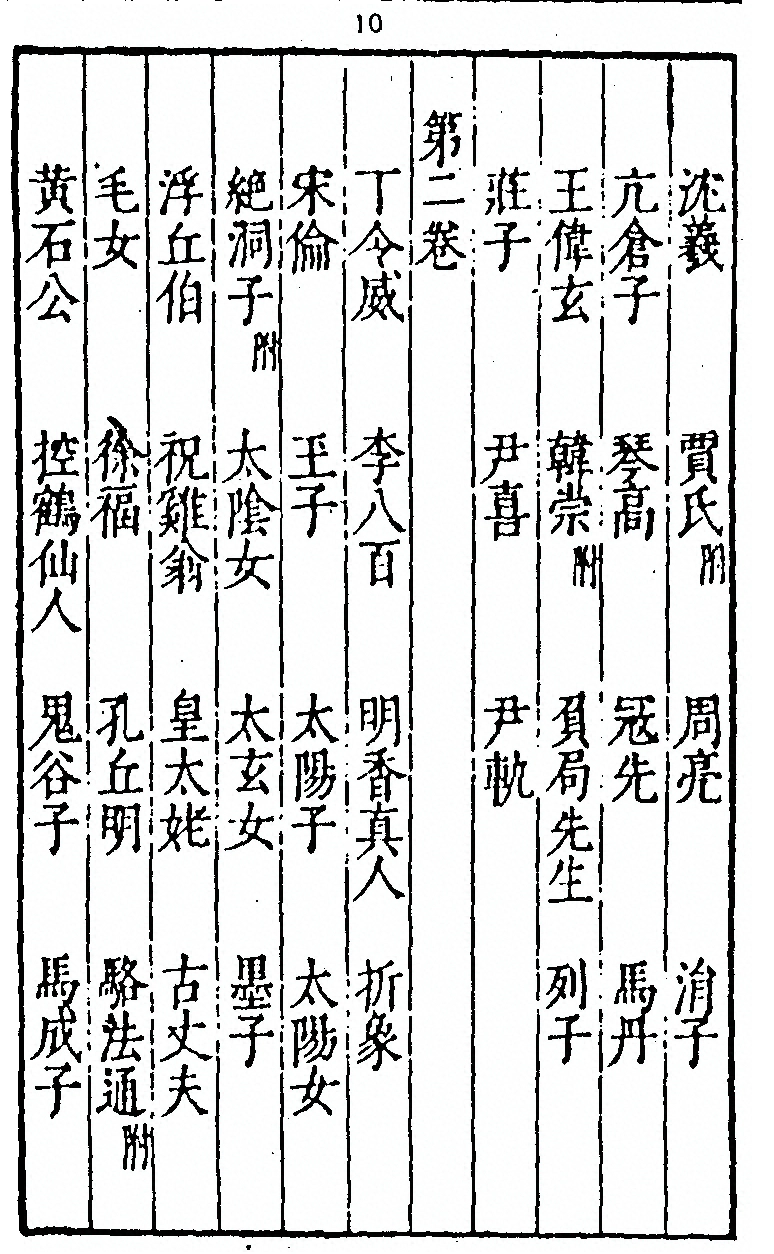 10
沈羲 賈氏附 周亮 涓子
亢倉子 琴高 冦先 馬丹
王偉玄 韓崇附 負局先生 列子
莊子 尹喜 尹軌
第二卷
丁令威 李八百 明香真人 折象
宋倫 玉子 太陽子 太陽女
絶洞子附 太陰女 太玄女 墨子
浮丘伯 祝雞翁 皇太姥 古丈夫
毛女 徐福 孔丘明 駱法通附
黄石公 控鶴仙人 鬼谷子 馬成子